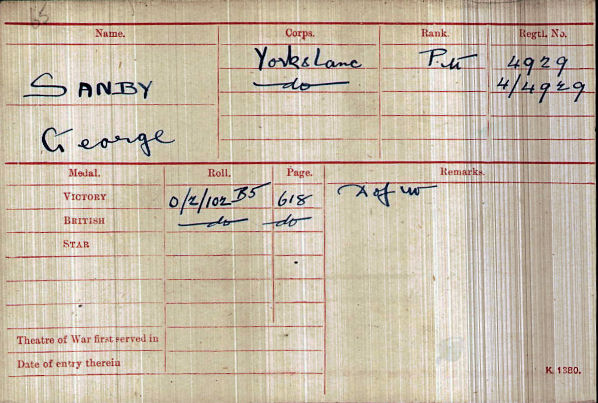 Name. Corps. Rank. Regtl. No.
SANBY York & Lanc Pte 4929
do 4/4929
George
Medal. Roll. Page. Remarks.
VICTORY O/2/102 B5 618 D of W
BRITISH do do
STAR
Theatre of War first served in
Date of entry therein
K. 1380.